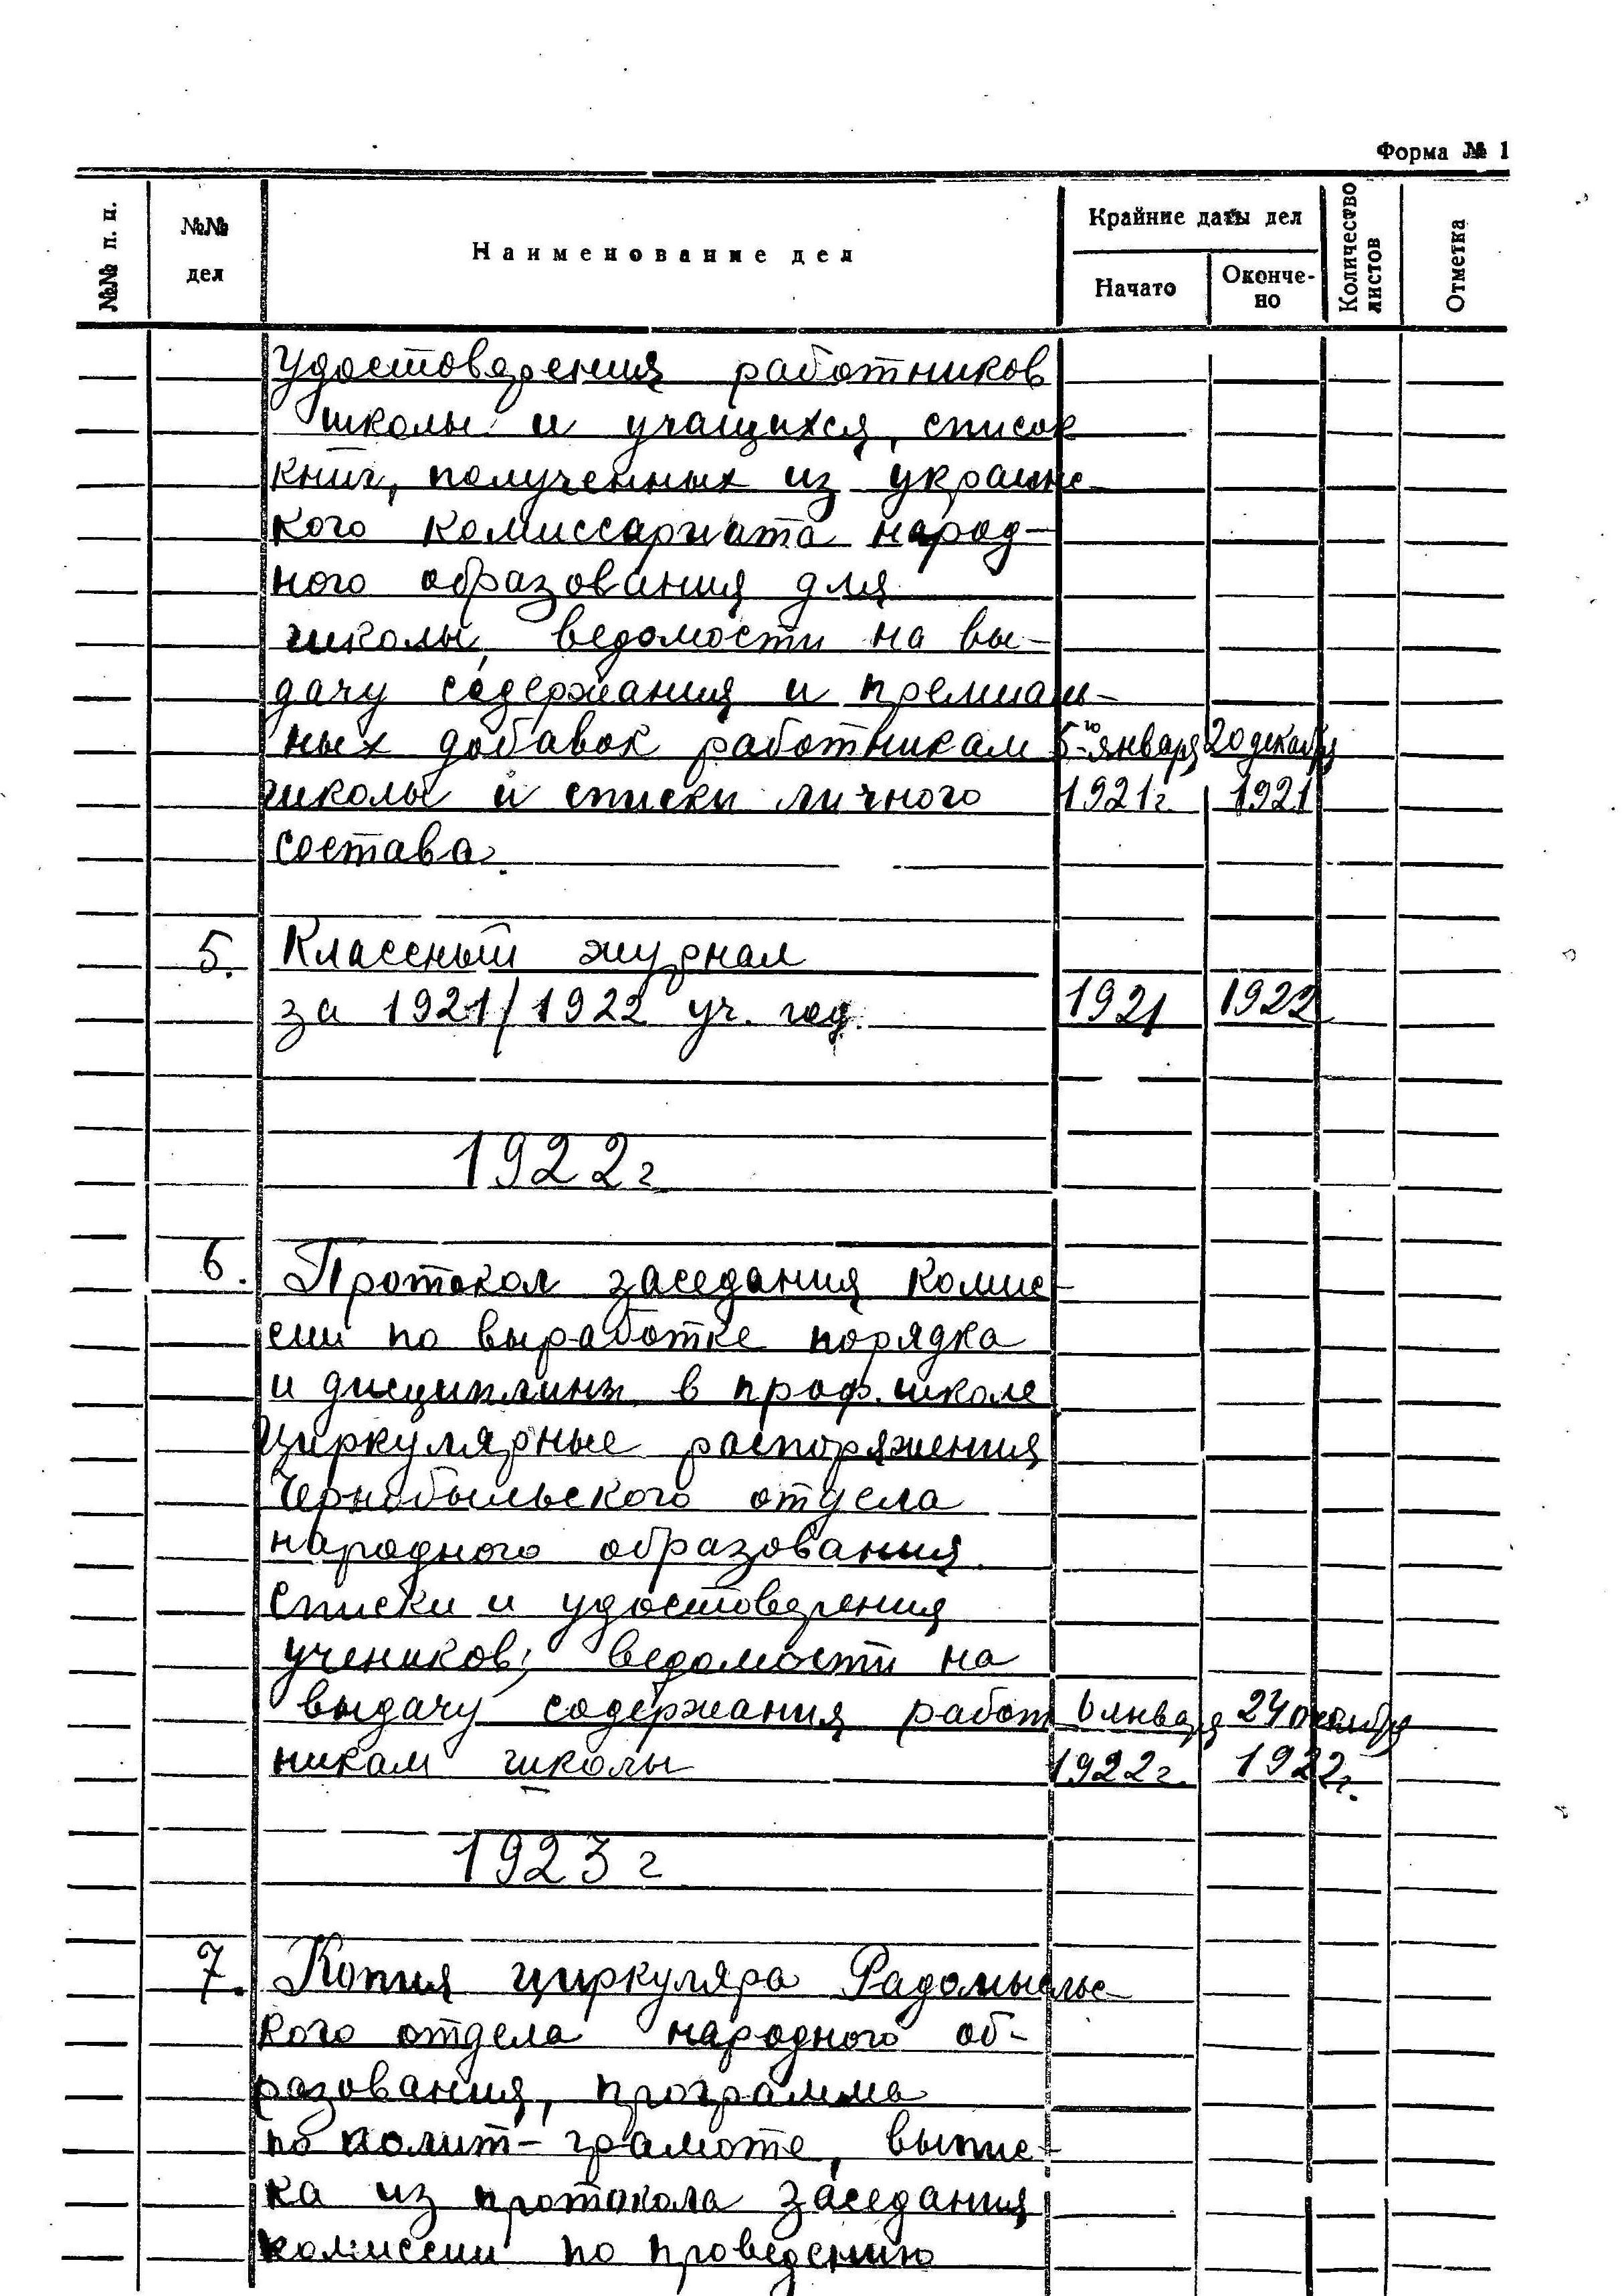 Форма № 1
№№ п. п.
№№ дел
Наименование дел
Крайние даты дел
Начато
Окончено
Количество листов
Отметка
удостоверения работников
школы и учащихся, список
книг, полученных из украинс-
кого комиссариата народ-
ного образования для
школы, ведомости на вы-
дачу содержания и премиаль-
ных добавок работникам 5-го января 20 декабря
школы и списки личного 1921г. 1921
состава.
5. Классный журнал
за 1921/1922 уч. год. 1921 1922
1922г
6. Протокол заседания комис-
сии по выработке порядка
и дисциплины в проф. школе
Циркулярные распоряжения
Чернобыльского отдела
народного образования.
Списки и удостоверения
учеников; ведомости на
выдачу содержания работ 6 января 24 октября
никам школы 1922г. 1922г.
1923г
7. Копия циркуляра Радомысльс-
кого отдела народного об-
разования, программа
по полит-грамоте, выпис-
ка из протокола заседания
комиссии по проведению